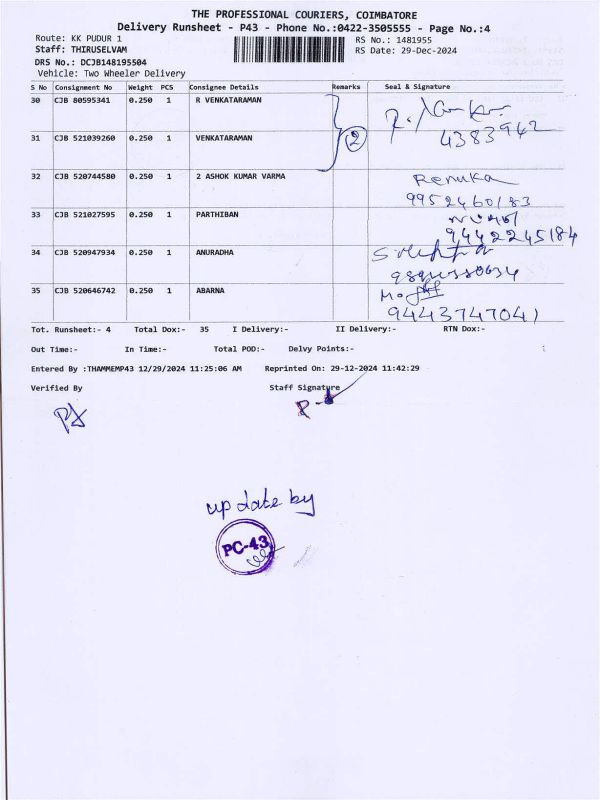 THE PROFESSIONAL COURIERS, COIMBATORE
Delivery Runsheet - P43 - Phone No.:0422-3505555 - Page No.:4
Route: KK PUDUR 1 RS No.: 1481955
Staff: THIRUSELVAM RS Date: 29-Dec-2024
DRS No.: DCJB148195504
Vehicle: Two Wheeler Delivery
S No Consignment No Weight PCS Consignee Details Remarks Seal & Signature
30 CJB 80595341 0.250 1 R VENKATARAMAN
4383942
31 CJB 521039260 0.250 1 VENKATARAMAN 2
32 CJB 520744580 0.250 1 2 ASHOK KUMAR VARMA Renuka
9952460183
33 CJB 521027595 0.250 1 PARTHIBAN
9442245184
34 CJB 520947934 0.250 1 ANURADHA
35 CJB 520646742 0.250 1 ABARNA
9443747041
Tot. Runsheet:- 4 Total Dox:- 35 I Delivery:- II Delivery:- RTN Dox:-
Out Time:- In Time:- Total POD:- Delvy Points:-
Entered By :THAMMEMP43 12/29/2024 11:25:06 AM Reprinted On: 29-12-2024 11:42:29
Verified By Staff Signature
update by
PC-43